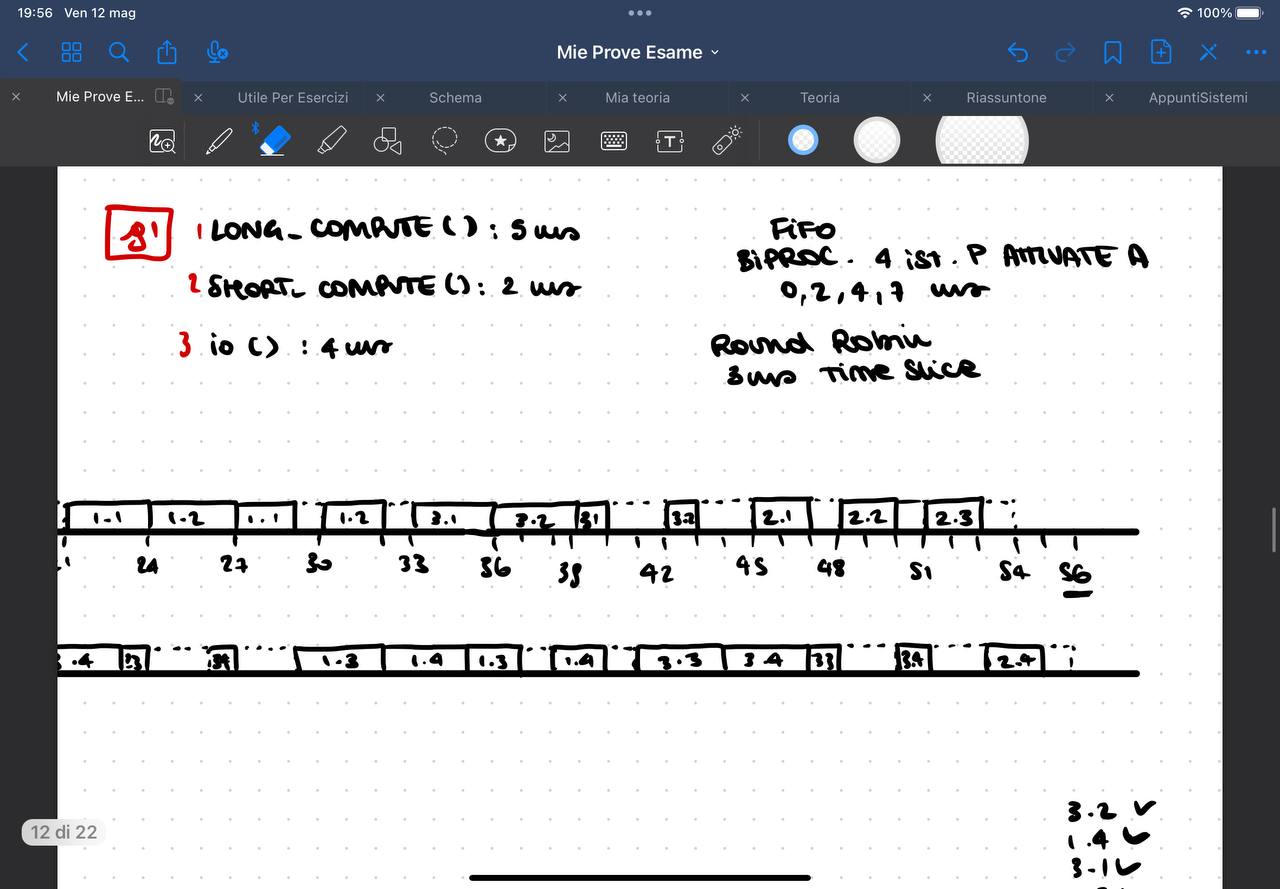 19:56 Ven 12 mag
100%
Mie Prove Esame
Mie Prove E...
Utile Per Esercizi
Schema
Mia teoria
Teoria
Riassuntone
AppuntiSistemi
1 LONG_COMPUTE ( ) : 5 ms
2 SHORT_ COMPUTE ( ) : 2 ms
3 io ( ) : 4 ms
FiFo
BiPROC. 4 ist. P ATTIVATE A
0, 2, 4, 7 ms
Round Robin
3 ms Time Slice
1.1 1.2 1.1 1.2 3.1 3.2 3.1 3.2 2.1 2.2 2.3
24 27 30 33 36 39 42 45 48 51 54 56
3.4 33 34 1.3 1.4 1.3 1.4 3.3 3.4 33 3.4 2.4
3.2 ✓
1.4 ✓
3.1 ✓
12 di 22